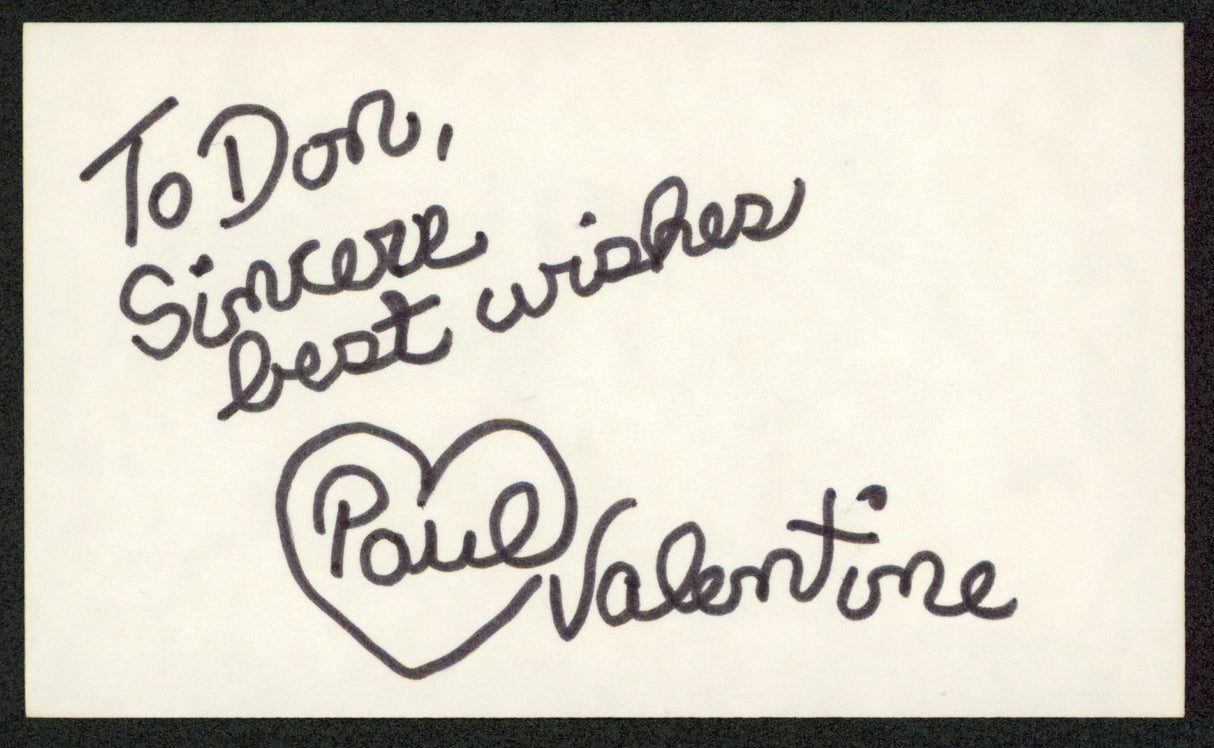 To Don,
Sincere
best wishes
Paul Valentine